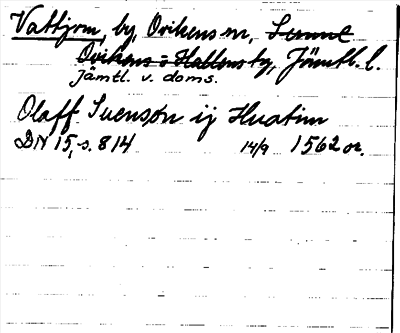 Vattjom, by, Ovikens sn,
Ovikens o Hallens tg, Jämtl. l.
Jämtl. v. doms.
Olaff Suensøn ij Huatim
DN 15, s. 814 14/9 1562 or.